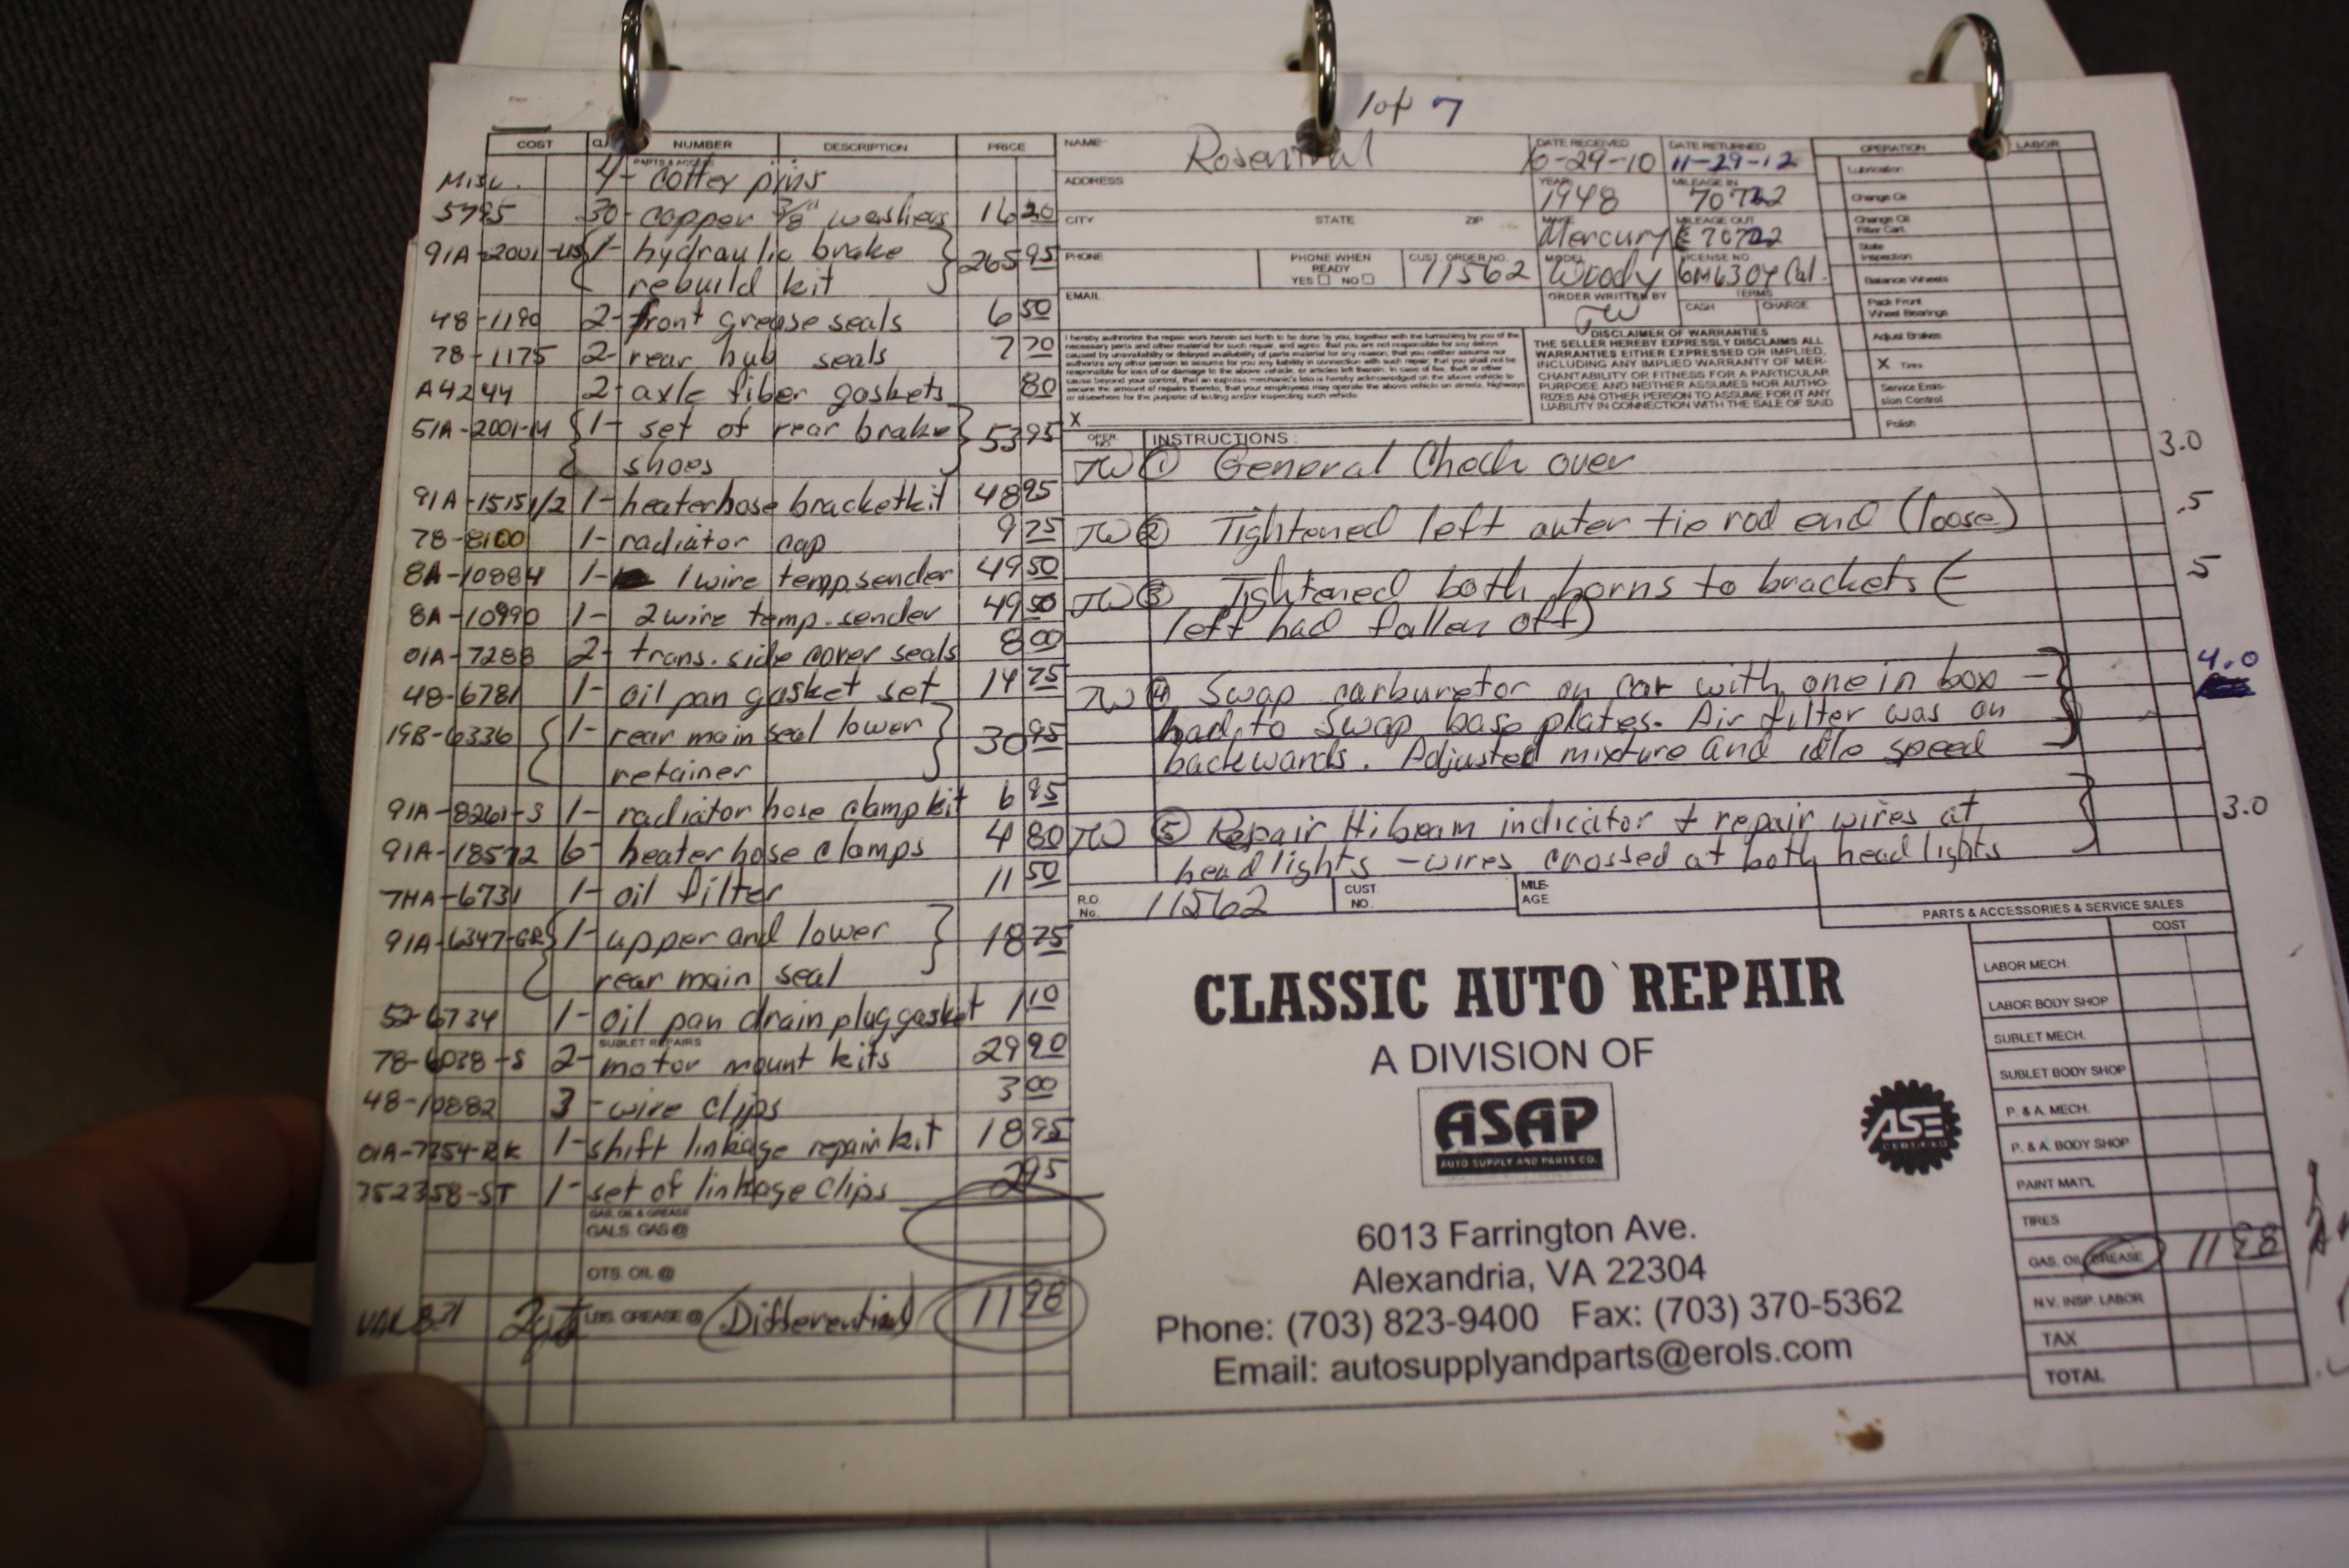 1 of 7
COST NUMBER DESCRIPTION PRICE
PARTS & ACCESS
Misc. 4- cotter pins
5795 30- copper 3/8" washers 16 20
91A-2001-US 1- hydraulic brake 265 95
rebuild kit
48-1190 2- front grease seals 6 50
78-1175 2- rear hub seals 7 70
A4244 2- axle fiber gaskets 80
51A-2001-M 1- set of rear brake 53 95
shoes
91A-15151/2 1- heaterhose bracketkit 48 95
78-8100 1- radiator cap 9 75
8A-10884 1- 1 wire temp.sender 49 50
8A-10990 1- 2 wire temp. sender 49 50
01A-7288 2- trans. side cover seals 8 00
48-6781 1- oil pan gasket set 14 75
19B-6336 1- rear main seal lower 30 95
retainer
91A-8261-S 1- radiator hose clamp kit 6 95
91A-18572 6- heater hose clamps 4 80
7HA-6731 1- oil filter 11 50
91A-6347-GR 1- upper and lower 18 75
rear main seal
52-6734 1- oil pan drain plug gasket 1 10
SUBLET REPAIRS
78-6038-S 2- motor mount kits 29 90
48-10882 3 - wire clips 3 00
01A-7354-RK 1- shift linkage repair kit 18 95
352358-ST 1- set of linkage clips 2 95
GAS, OIL & GREASE
GALS. GAS @
QTS. OIL @
VAL831 2qt LBS. GREASE @ (Differential) 11 98
NAME Rosenthal
ADDRESS
CITY STATE ZIP
PHONE PHONE WHEN READY YES NO CUST. ORDER NO. 11562
EMAIL
DATE RECEIVED 10-29-10 DATE RETURNED 11-29-12
YEAR 1948 MILEAGE IN 70722
MAKE Mercury MILEAGE OUT E 70722
MODEL Woody LICENSE NO. 6M6304 Cal.
ORDER WRITTEN BY TW TERMS CASH CHARGE
I hereby authorize the repair work herein set forth to be done by you, together with the furnishing by you of the
necessary parts and other material for such repair, and agree: that you are not responsible for any delays
caused by unavailability or delayed availability of parts material for any reason; that you neither assume nor
authorize any other person to assume for you any liability in connection with such repair; that you shall not be
responsible for loss of or damage to the above vehicle, or articles left therein, in case of fire, theft or other
cause beyond your control, that an express mechanic's lien is hereby acknowledged on the above vehicle to
secure the amount of repairs thereto; that your employees may operate the above vehicle on streets, highways
or elsewhere for the purpose of testing and/or inspecting such vehicle
X
DISCLAIMER OF WARRANTIES
THE SELLER HEREBY EXPRESSLY DISCLAIMS ALL
WARRANTIES EITHER EXPRESSED OR IMPLIED,
INCLUDING ANY IMPLIED WARRANTY OF MER-
CHANTABILITY OR FITNESS FOR A PARTICULAR
PURPOSE AND NEITHER ASSUMES NOR AUTHO-
RIZES AN OTHER PERSON TO ASSUME FOR IT ANY
LIABILITY IN CONNECTION WITH THE SALE OF SAID
OPERATION LABOR
Lubrication
Change Oil
Change Oil
Filter Cart.
State
Inspection
Balance Wheels
Pack Front
Wheel Bearings
Adjust Brakes
X Tires
Service Emis-
sion Control
Polish
OPER. NO. INSTRUCTIONS:
TW 1 General Check over 3.0
TW 2 Tightened left outer tie rod end (loose) .5
TW 3 Tightened both horns to brackets (- 5
left had fallen off)
TW 4 Swap carburetor on car with one in box - 4.0
had to swap base plates. Air filter was on
backwards. Adjusted mixture and idle speed
TW 5 Repair Hibeam indicator + repair wires at 3.0
headlights - wires crossed at both headlights
R.O. No. 11562 CUST NO. MILE-AGE
CLASSIC AUTO REPAIR
A DIVISION OF
ASAP
AUTO SUPPLY AND PARTS CO.
ASE
CERTIFIED
6013 Farrington Ave.
Alexandria, VA 22304
Phone: (703) 823-9400 Fax: (703) 370-5362
Email: autosupplyandparts@erols.com
PARTS & ACCESSORIES & SERVICE SALES
COST
LABOR MECH.
LABOR BODY SHOP
SUBLET MECH.
SUBLET BODY SHOP
P. & A. MECH.
P. & A. BODY SHOP
PAINT MAT'L
TIRES
GAS, OIL GREASE 11 98
N.V. INSP. LABOR
TAX
TOTAL